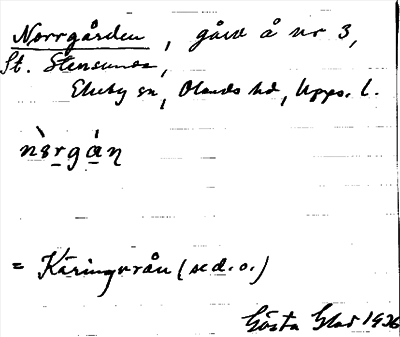 Norrgården, gård å nr 3,
St. Stensunda,
Ekeby sn, Olands hd, Upps. l.
= Käringvrån (se d. o.)
Gösta Blad 1936